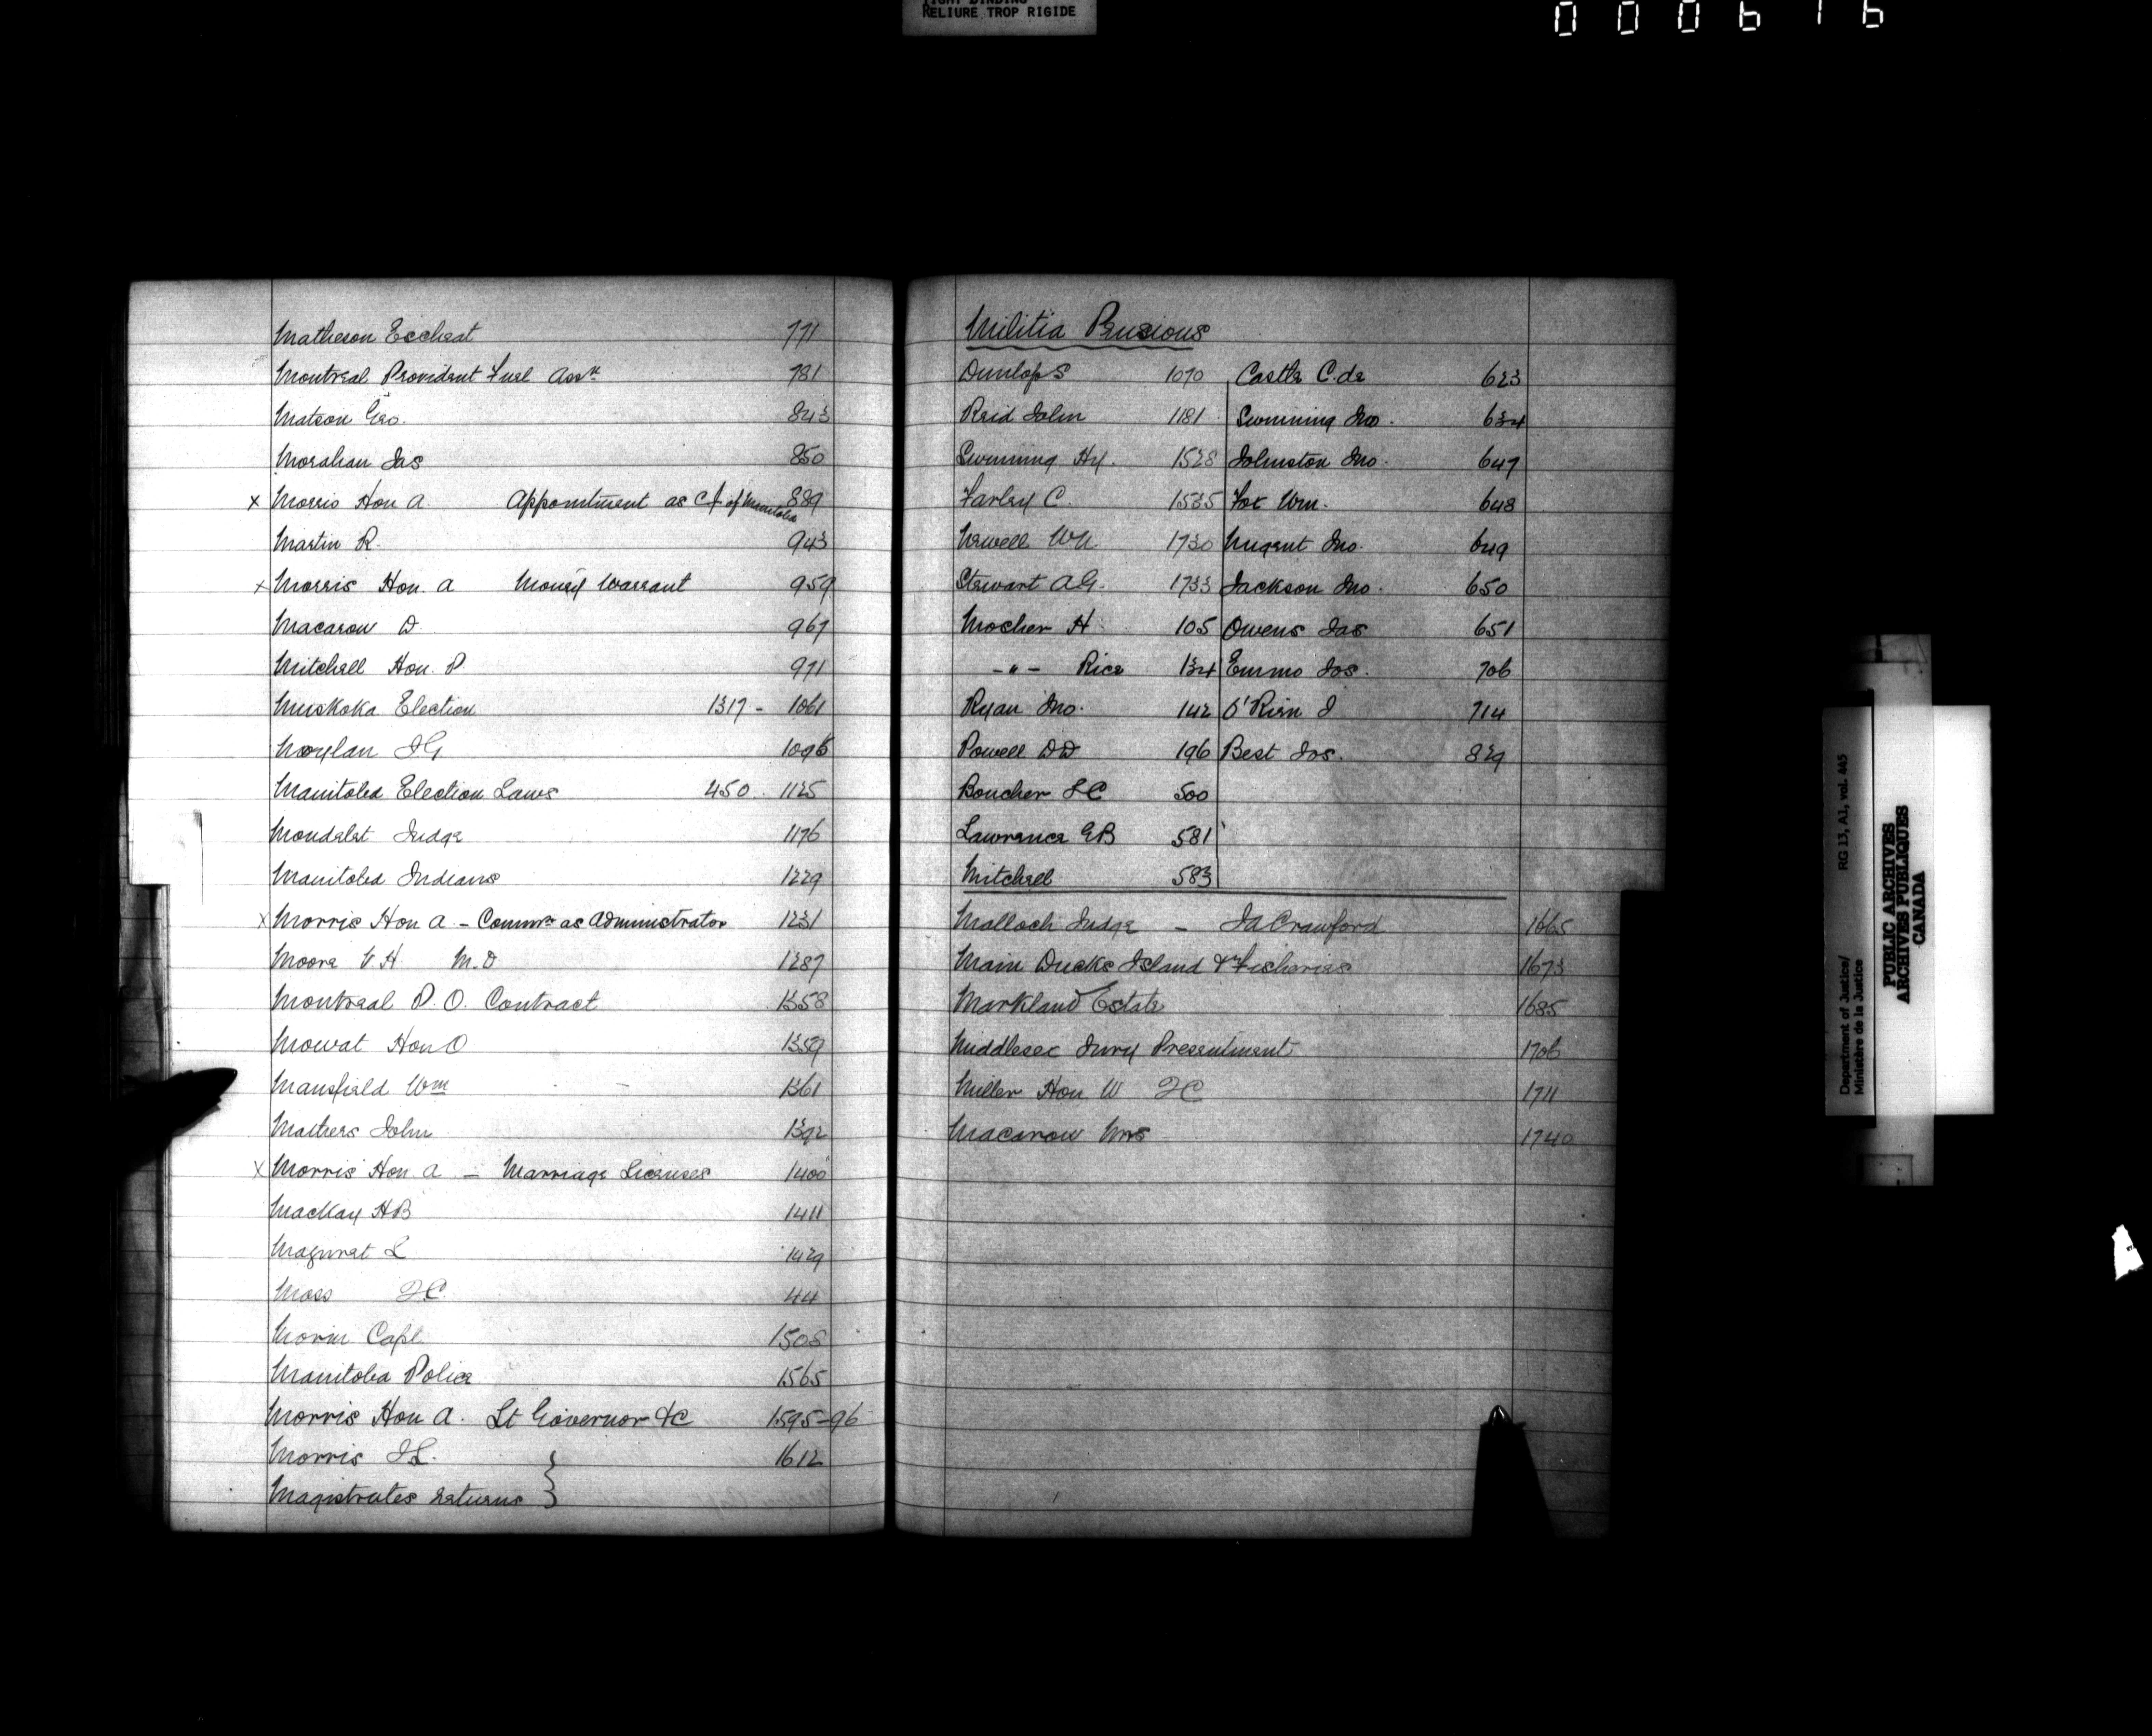 TIGHT BINDING
RELIURE TROP RIGIDE
000616
Matheson Escheat 771
Montreal Provident Fuel Assn 781
Matson Geo. 843
Morahan Jas 850
x Morris Hon A. Appointment as CJ of Manitoba 889
Martin R. 943
x Morris Hon. A Money Warrant 959
Macarow D. 967
Mitchell Hon. P. 971
Muskoka Election 1317 - 1061
Moylan JG 1096
Manitoba Election Laws 450 . 1125
Mondelet Judge 1176
Manitoba Indians 1229
x Morris Hon A - Commn as Administrator 1231
Moore V.H. M.D 1287
Montreal P.O. Contract 1358
Mowat Hon O 1359
Mansfield Wm 1361
Mathers John 1392
x Morris Hon. A - Marriage Licenses 1400
MacKay HB 1411
L 1429
Moss JC. 44
Morin Capt 1508
Manitoba Police 1565
Morris Hon A. Lt Governor &c 1595-96
Morris JL. } 1612
Magistrates returns }
Militia Pensions
Dunlop S 1070
Reid John 1181
Hy. 1528
Farley C. 1535
Newell Wm 1730
Stewart AG. 1733
Mosher H 105
-"- Rice 134
Ryan Jno. 142
Powell DD 196
Boucher FC 500
Lawrence GB 581
Mitchell 583
Castle C.de 623
Jno. 634
Johnston Jno. 647
Fox Wm. 648
Nugent Jno. 649
Jackson Jno. 650
Owens Jas 651
Emmo Jos. 706
O'Rien J 714
Best Jos. 829
Malloch Judge - Jd Crawford 1665
Main Ducks Island & Fisheries 1673
Markland Estate 1685
Middlesex Jury Presentment 1706
Miller Hon W JC 1711
Macarow Mrs 1740
Department of Justice/
Ministère de la Justice
RG 13, A1, vol. 445
PUBLIC ARCHIVES
ARCHIVES PUBLIQUES
CANADA